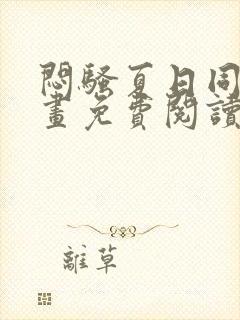 悶騷夏日同
畫免費閱讀
離草